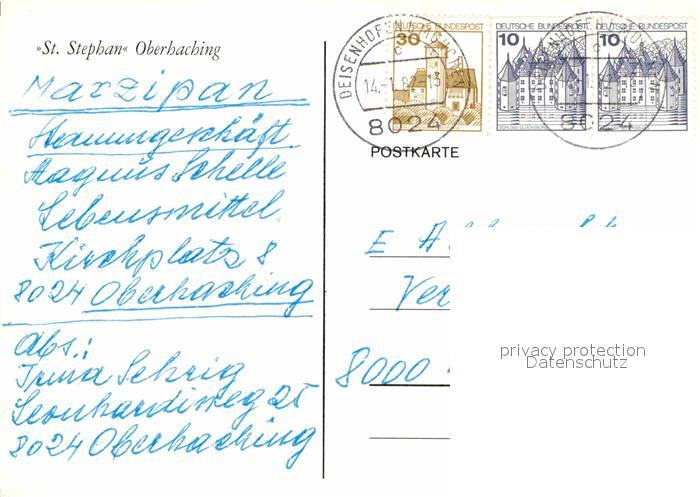 »St. Stephan« Oberhaching
Marzipan
Magnus Schelle
Lebensmittel
Kirchplatz 8
8024 Oberhaching
Abs.:
Irma Sehrig
Leonhardiweg 25
8024 Oberhaching
DEUTSCHE BUNDESPOST
30
DEUTSCHE BUNDESPOST
10
DEUTSCHE BUNDESPOST
10
DEISENHOFEN
8024
8024
POSTKARTE
E
Ver
8000
privacy protection
Datenschutz